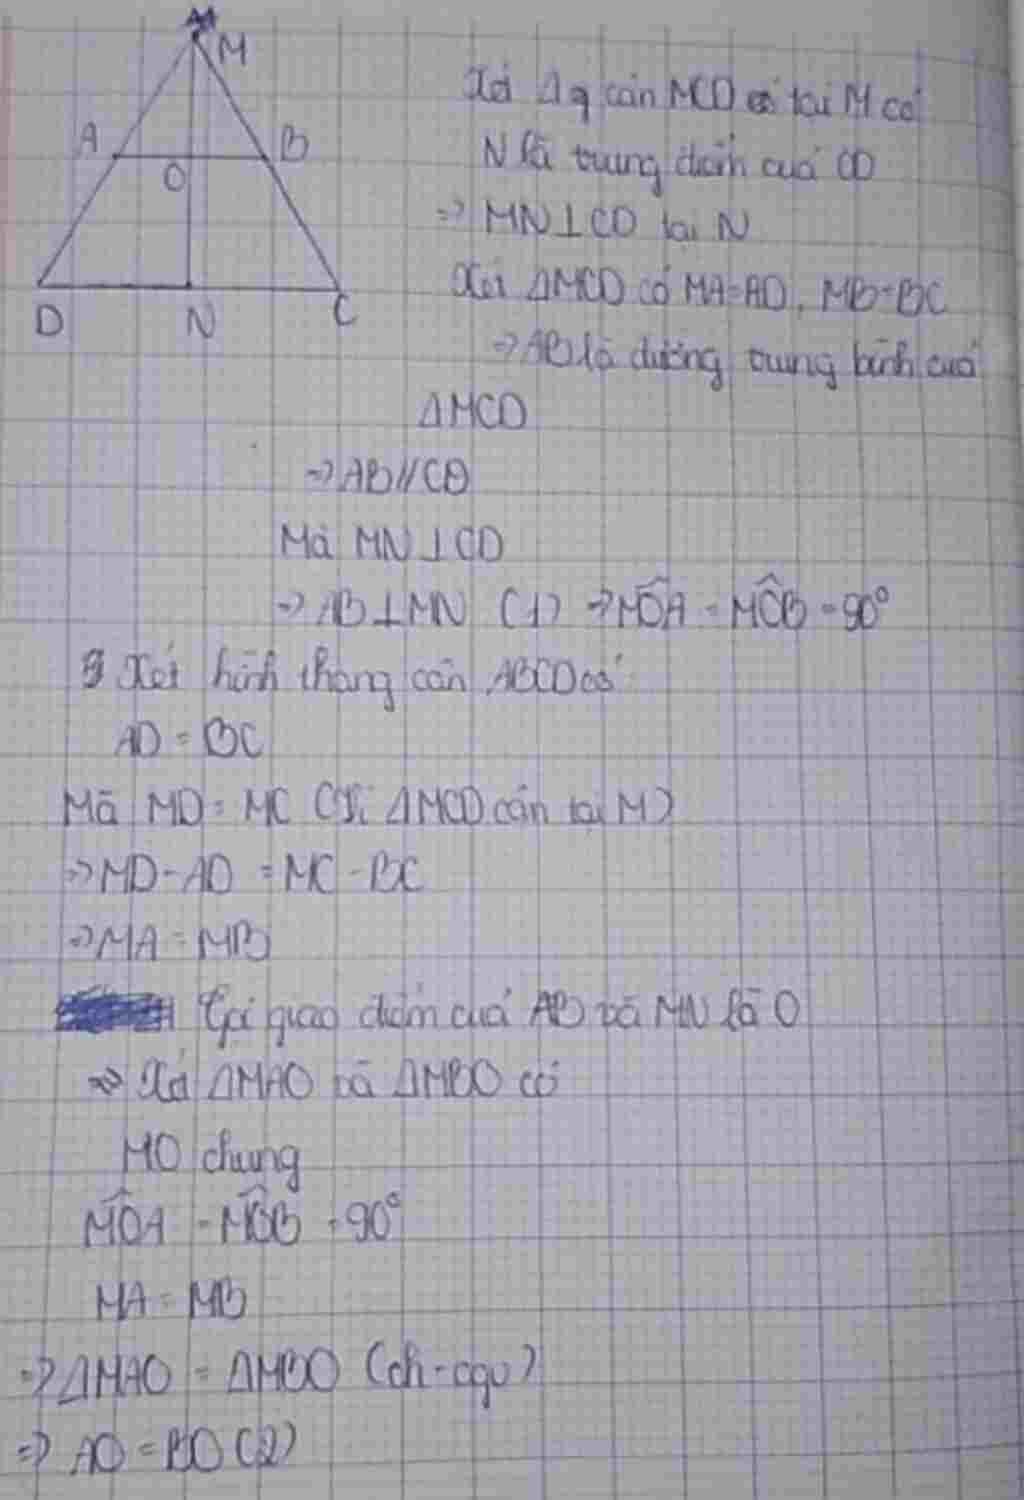 M
A
B
O
D
N
C
Xét Δ cân MCD tại M có
N là trung điểm của CD
=> MN⊥CD tại N
Xét ΔMCD có MA=AD, MB=BC
=> AB là đường trung bình của
ΔMCD
=> AB//CD
Mà MN⊥CD
=> AB⊥MN (1) => MÔA = MÔB = 90°
Xét hình thang cân ABCD có
AD = BC
Mà MD = MC (Vì ΔMCD cân tại M)
=> MD - AD = MC - BC
=> MA = MB
Gọi giao điểm của AB và MN là O
=> Xét ΔMAO và ΔMBO có
MO chung
MÔA = MÔB = 90°
MA = MB
=> ΔMAO = ΔMBO (ch-cgv)
=> AO = BO (2)